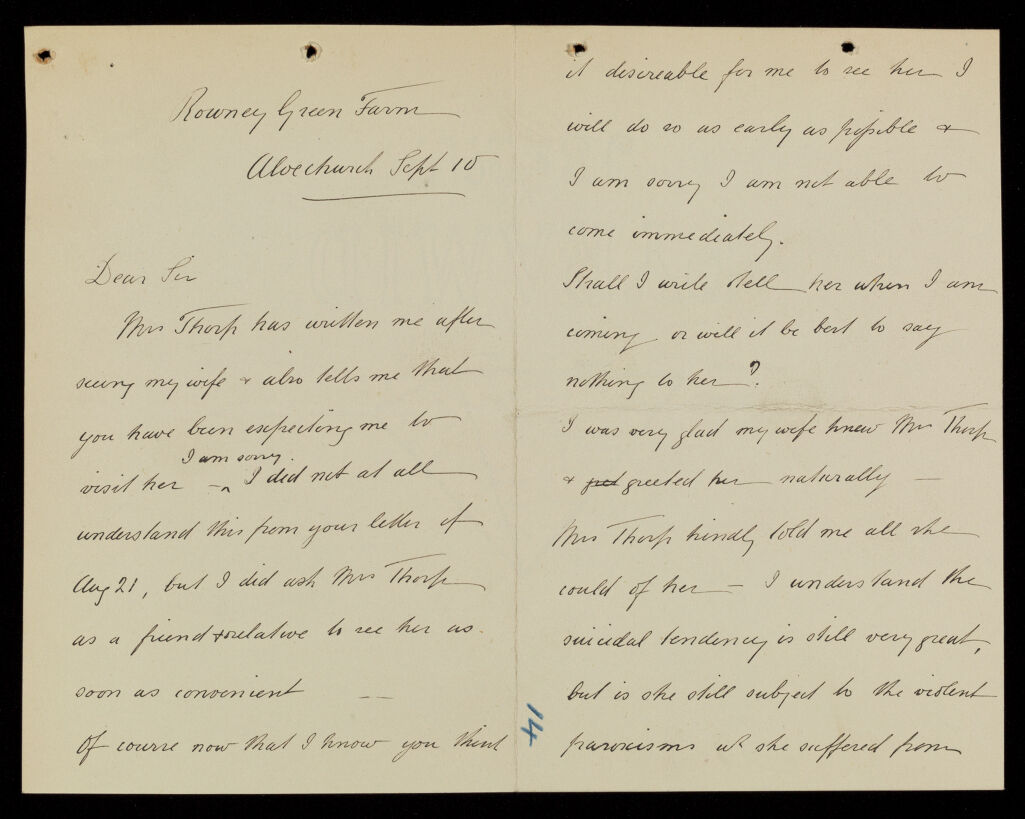 Rowney Green Farm
Alvechurch Sept 10
Dear Sir
Mrs Thorp has written me after
seeing my wife & also tells me that
you have been expecting me to
I am sorry.
visit her – I did not at all
understand this from your letter of
Aug 21, but I did ask Mrs Thorp
as a friend & relative to see her as
soon as convenient —
Of course now that I know you think
it desireable for me to see her I
will do so as early as possible &
I am sorry I am not able to
come immediately.
Shall I write & tell her when I am
coming or will it be best to say
nothing to her?
I was very glad my wife knew Mrs Thorp
& greeted her naturally —
Mrs Thorp kindly told me all she
could of her – I understand the
suicidal tendency is still very great,
but is she still subject to the violent
paroxisms wh she suffered from
14